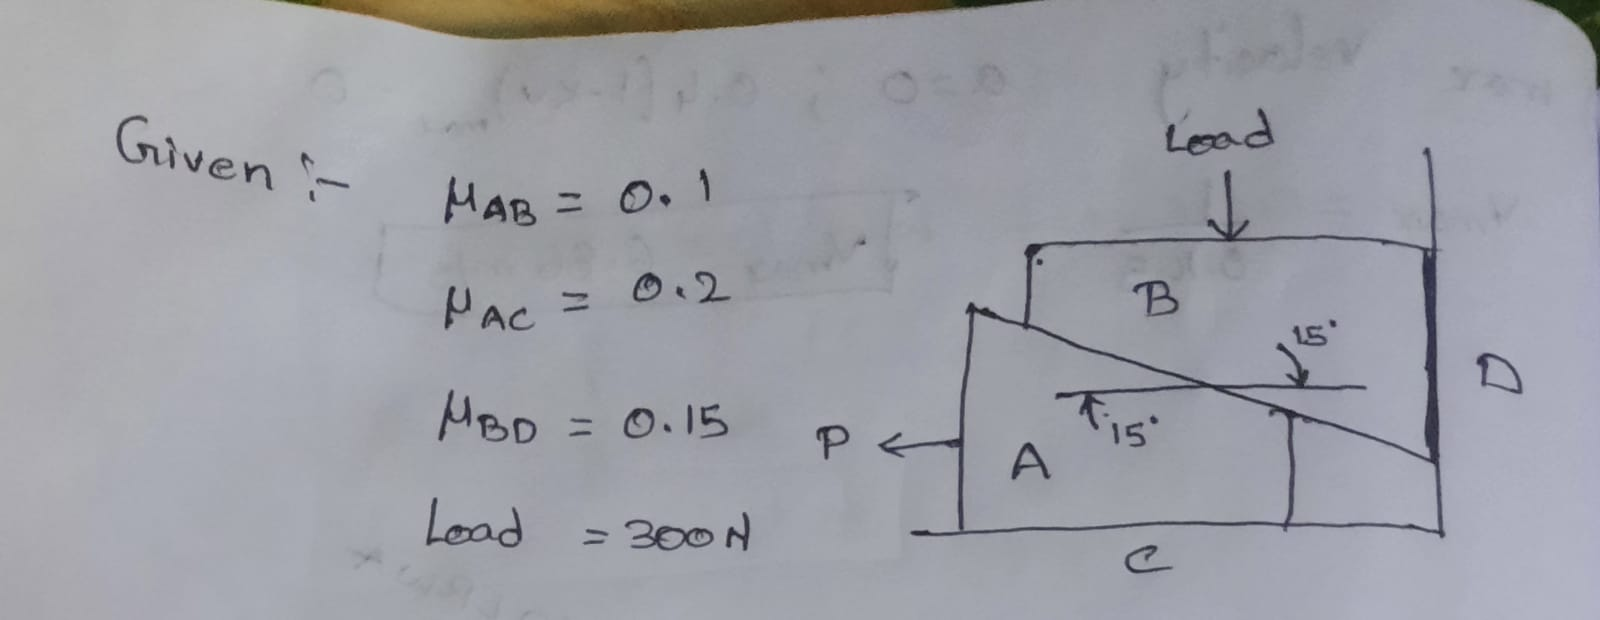 Given :-
μAB = 0.1
μAC = 0.2
μBD = 0.15
Load = 300N
Load
B
15°
D
15°
P
A
C